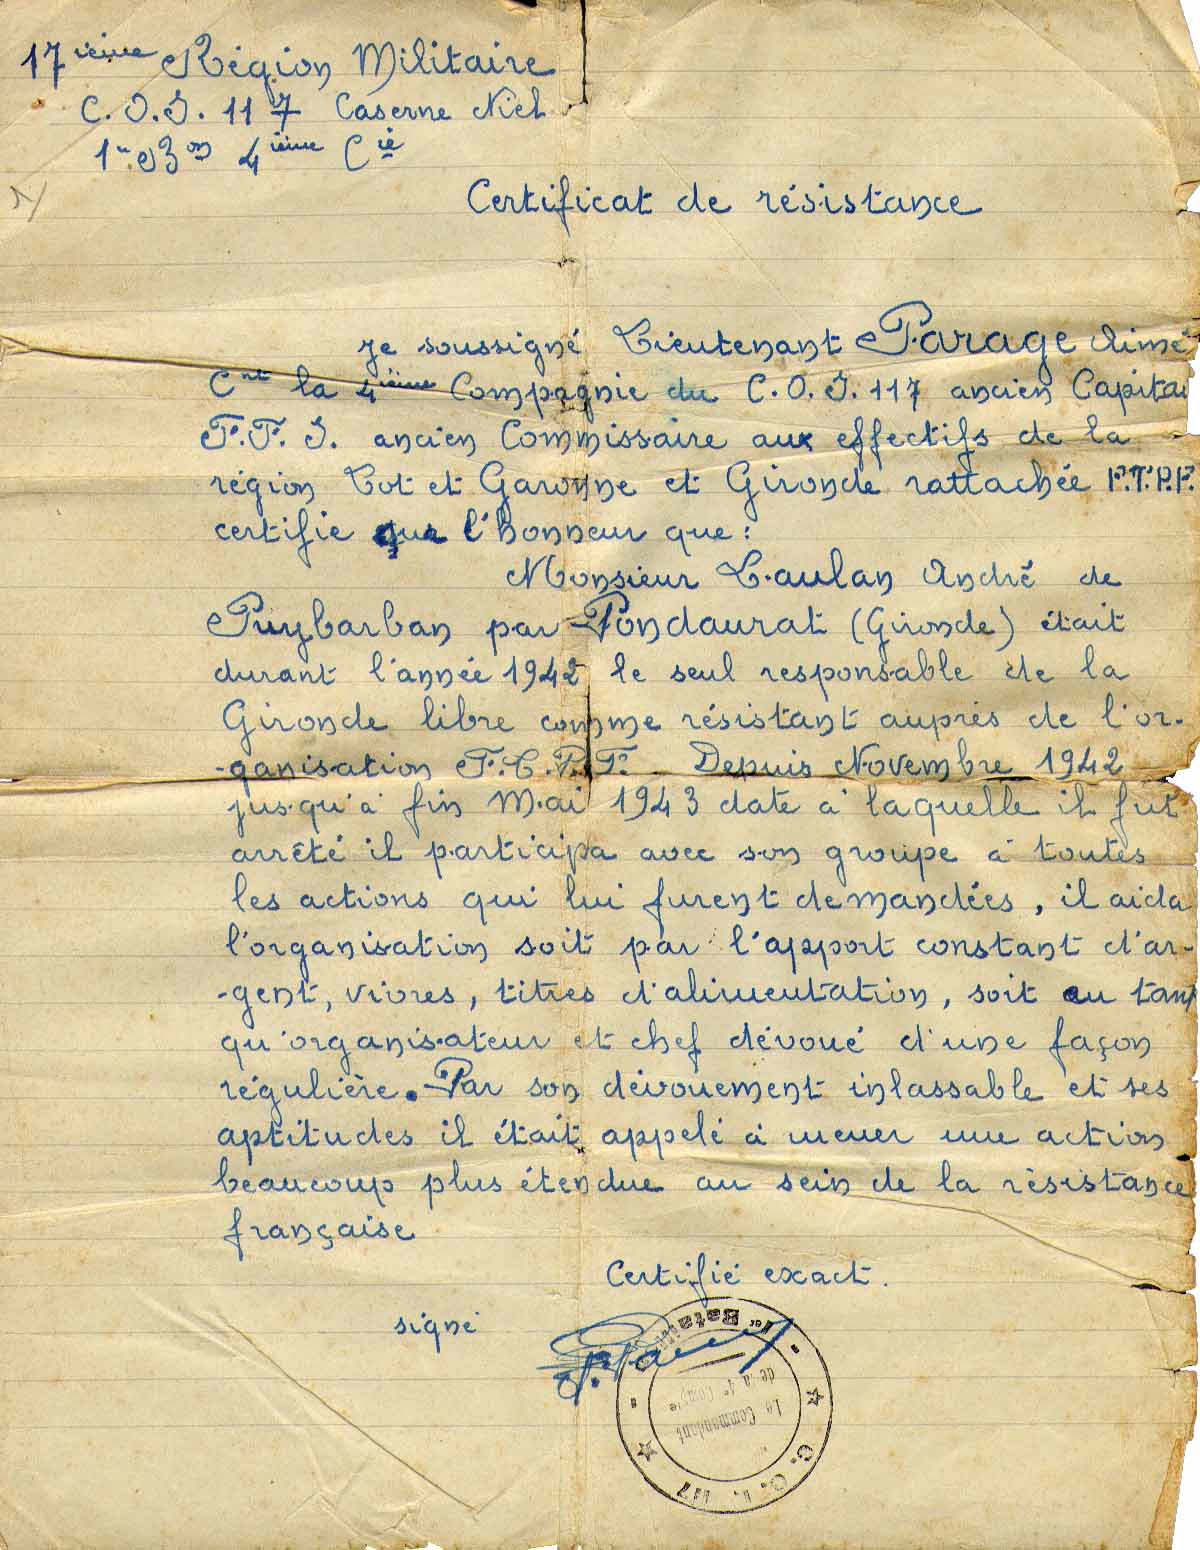 17ième Région Militaire
C. O. I. 117 Caserne Niel
1er B3on 4ième Cie
Certificat de résistance
Je soussigné Lieutenant Parage Aimé
Cnt la 4ième Compagnie du C.O.I. 117 ancien Capitai
F.F.I. ancien Commissaire aux effectifs de la
région Lot et Garonne et Gironde rattachée F.T.P.F.
certifie sur l'honneur que :
Monsieur Laulan André de
Puybarban par Pondaurat (Gironde) était
durant l'année 1942 le seul responsable de la
Gironde libre comme résistant auprès de l'or-
-ganisation F.T.P.F. Depuis Novembre 1942
jusqu'à fin Mai 1943 date à laquelle il fut
arrêté il participa avec son groupe à toutes
les actions qui lui furent demandées, il aida
l'organisation soit par l'apport constant d'ar-
-gent, vivres, titres d'alimentation, soit en tant
qu'organisateur et chef dévoué d'une façon
régulière. Par son dévouement inlassable et ses
aptitudes il était appelé à mener une action
beaucoup plus étendue au sein de la résistance
française
Certifié exact.
signé
1er Bataillon
Le Commandant
de la 4e Compagnie
C. O. I. 117